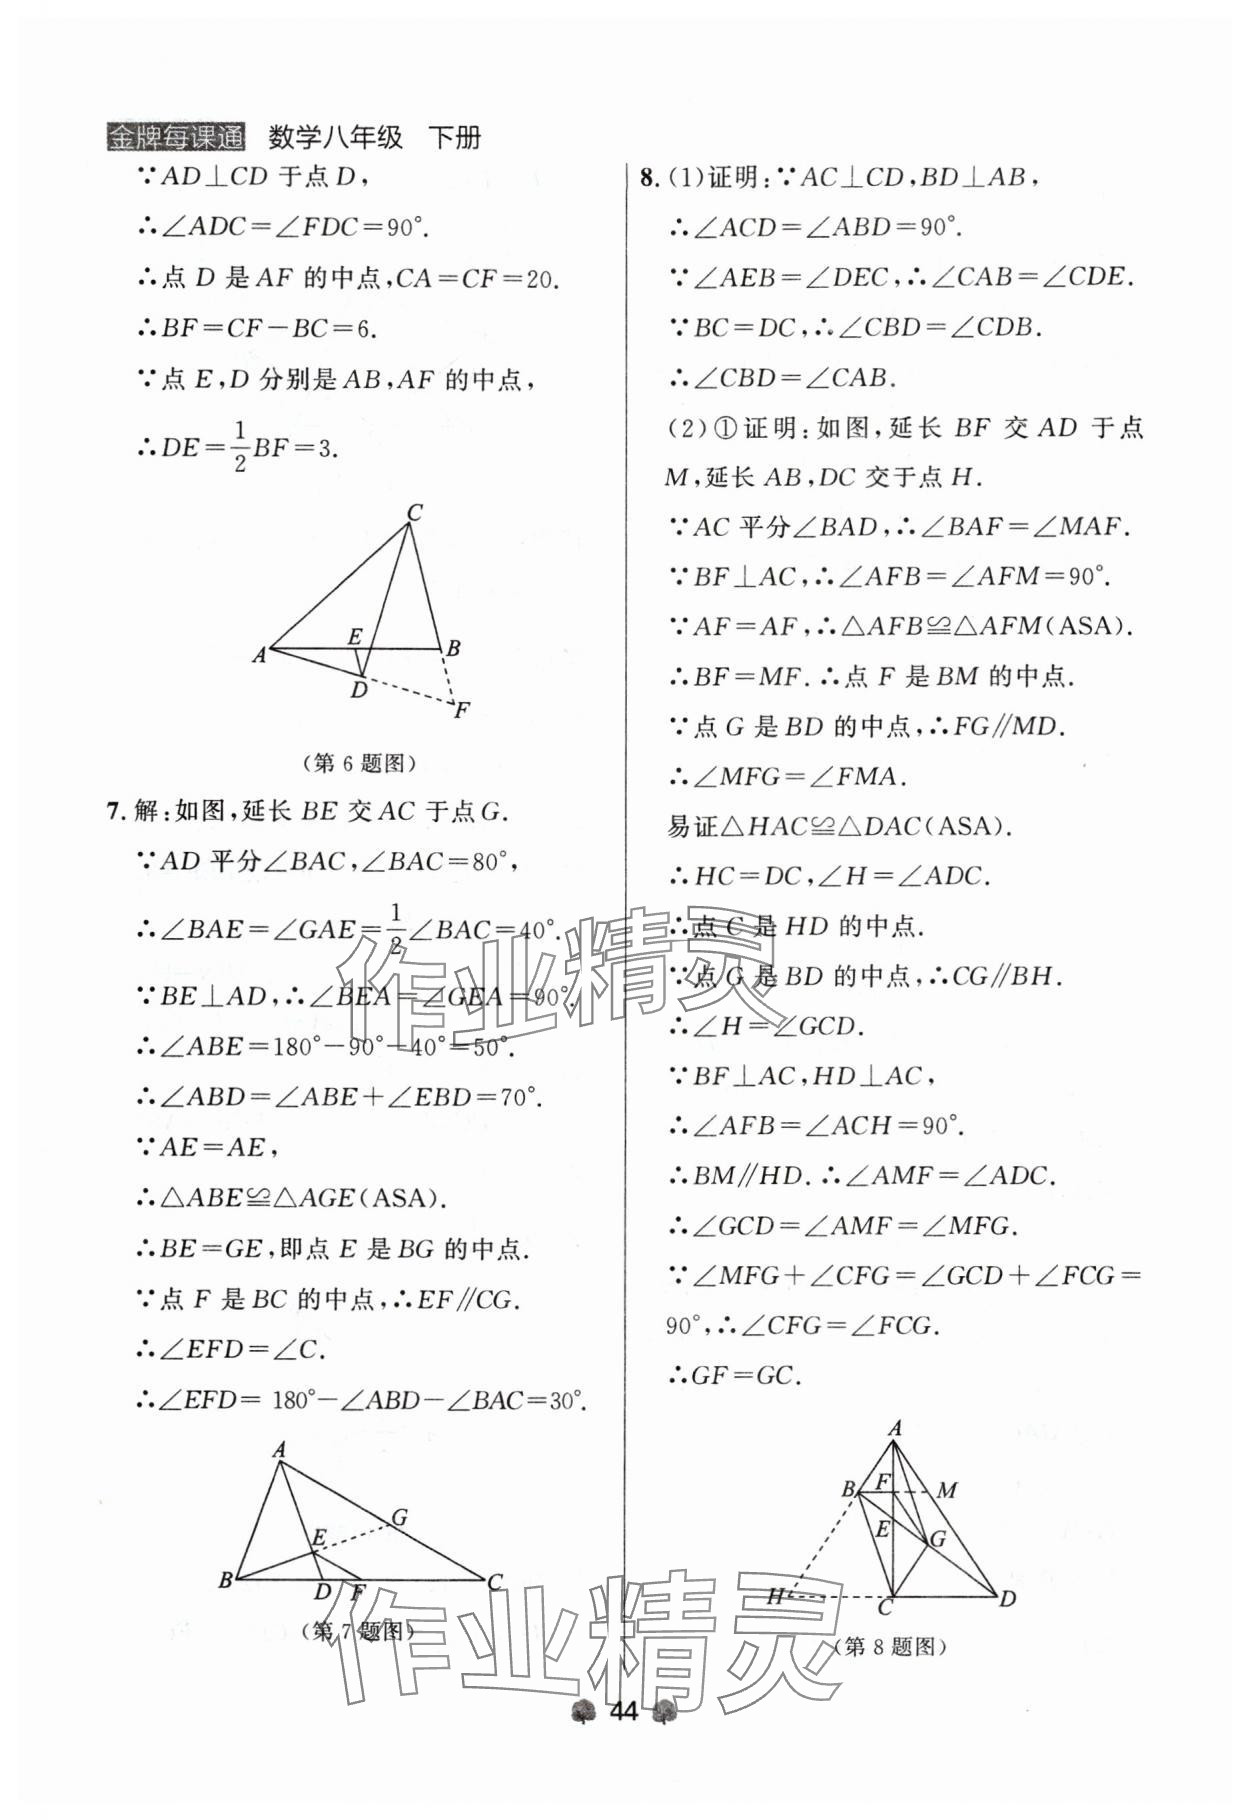 金牌每课通 数学八年级 下册
∵AD⊥CD 于点D，
∴∠ADC=∠FDC=90°.
∴点 D 是 AF 的中点，CA=CF=20.
∴BF=CF-BC=6.
∵点 E，D 分别是 AB，AF 的中点，
∴DE=1/2BF=3.
C
E
A
B
D
F
（第 6 题图）
7. 解：如图，延长 BE 交 AC 于点 G.
∵AD 平分∠BAC，∠BAC=80°，
∴∠BAE=∠GAE=1/2∠BAC=40°.
∵BE⊥AD，∴∠BEA=∠GEA=90°.
∴∠ABE=180°-90°-40°=50°.
∴∠ABD=∠ABE+∠EBD=70°.
∵AE=AE，
∴△ABE≌△AGE(ASA).
∴BE=GE，即点 E 是 BG 的中点.
∵点 F 是 BC 的中点，∴EF∥CG.
∴∠EFD=∠C.
∴∠EFD= 180°-∠ABD-∠BAC=30°.
A
G
E
B
D
F
C
（第 7 题图）
8. (1)证明：∵AC⊥CD，BD⊥AB，
∴∠ACD=∠ABD=90°.
∵∠AEB=∠DEC，∴∠CAB=∠CDE.
∵BC=DC，∴∠CBD=∠CDB.
∴∠CBD=∠CAB.
(2)①证明：如图，延长 BF 交 AD 于点
M，延长 AB，DC 交于点 H.
∵AC 平分∠BAD，∴∠BAF=∠MAF.
∵BF⊥AC，∴∠AFB=∠AFM=90°.
∵AF=AF，∴△AFB≌△AFM(ASA).
∴BF=MF. ∴点 F 是 BM 的中点.
∵点 G 是 BD 的中点，∴FG∥MD.
∴∠MFG=∠FMA.
易证△HAC≌△DAC(ASA).
∴HC=DC，∠H=∠ADC.
∴点 C 是 HD 的中点.
∵点 G 是 BD 的中点，∴CG∥BH.
∴∠H=∠GCD.
∵BF⊥AC，HD⊥AC，
∴∠AFB=∠ACH=90°.
∴BM∥HD. ∴∠AMF=∠ADC.
∴∠GCD=∠AMF=∠MFG.
∵∠MFG+∠CFG=∠GCD+∠FCG=
90°，∴∠CFG=∠FCG.
∴GF=GC.
A
B
F
M
E
G
H
C
D
（第 8 题图）
作业精灵
作业精灵
44